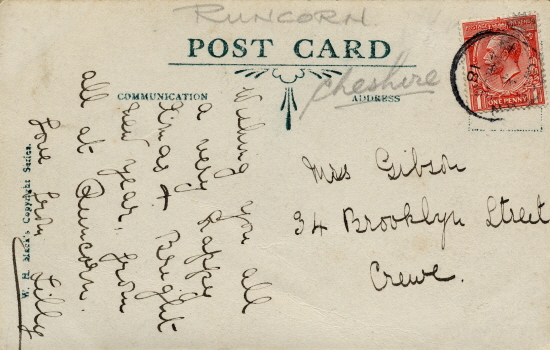 RUNCORN.
POST CARD
Cheshire
COMMUNICATION
ADDRESS
ONE PENNY
Wishing you all
a very Happy
Xmas & Bright
new year, from
all at Runcorn.
Love from Lilly
Mrs Gibson
34 Brooklyn Street
Crewe.
Copyright Series.